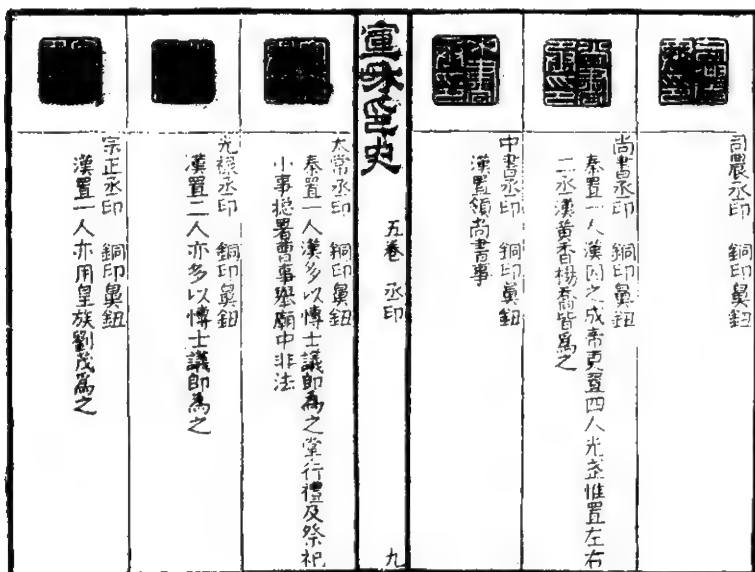 司農丞印　銅印鼻鈕
尚書丞印　銅印鼻鈕
秦置一人漢因之成帝更置四人光武惟置左右
二丞漢黃香楊喬皆為之
中書丞印　銅印鼻鈕
漢置領尚書事
宣和印史　五卷　丞印　九
太常丞印　銅印鼻鈕
秦置一人漢多以博士議郎為之掌行禮及祭祀
小事總署曹事舉廟中非法
光祿丞印　銅印鼻鈕
漢置二人亦多以博士議郎為之
宗正丞印　銅印鼻鈕
漢置一人亦用皇族劉茂為之